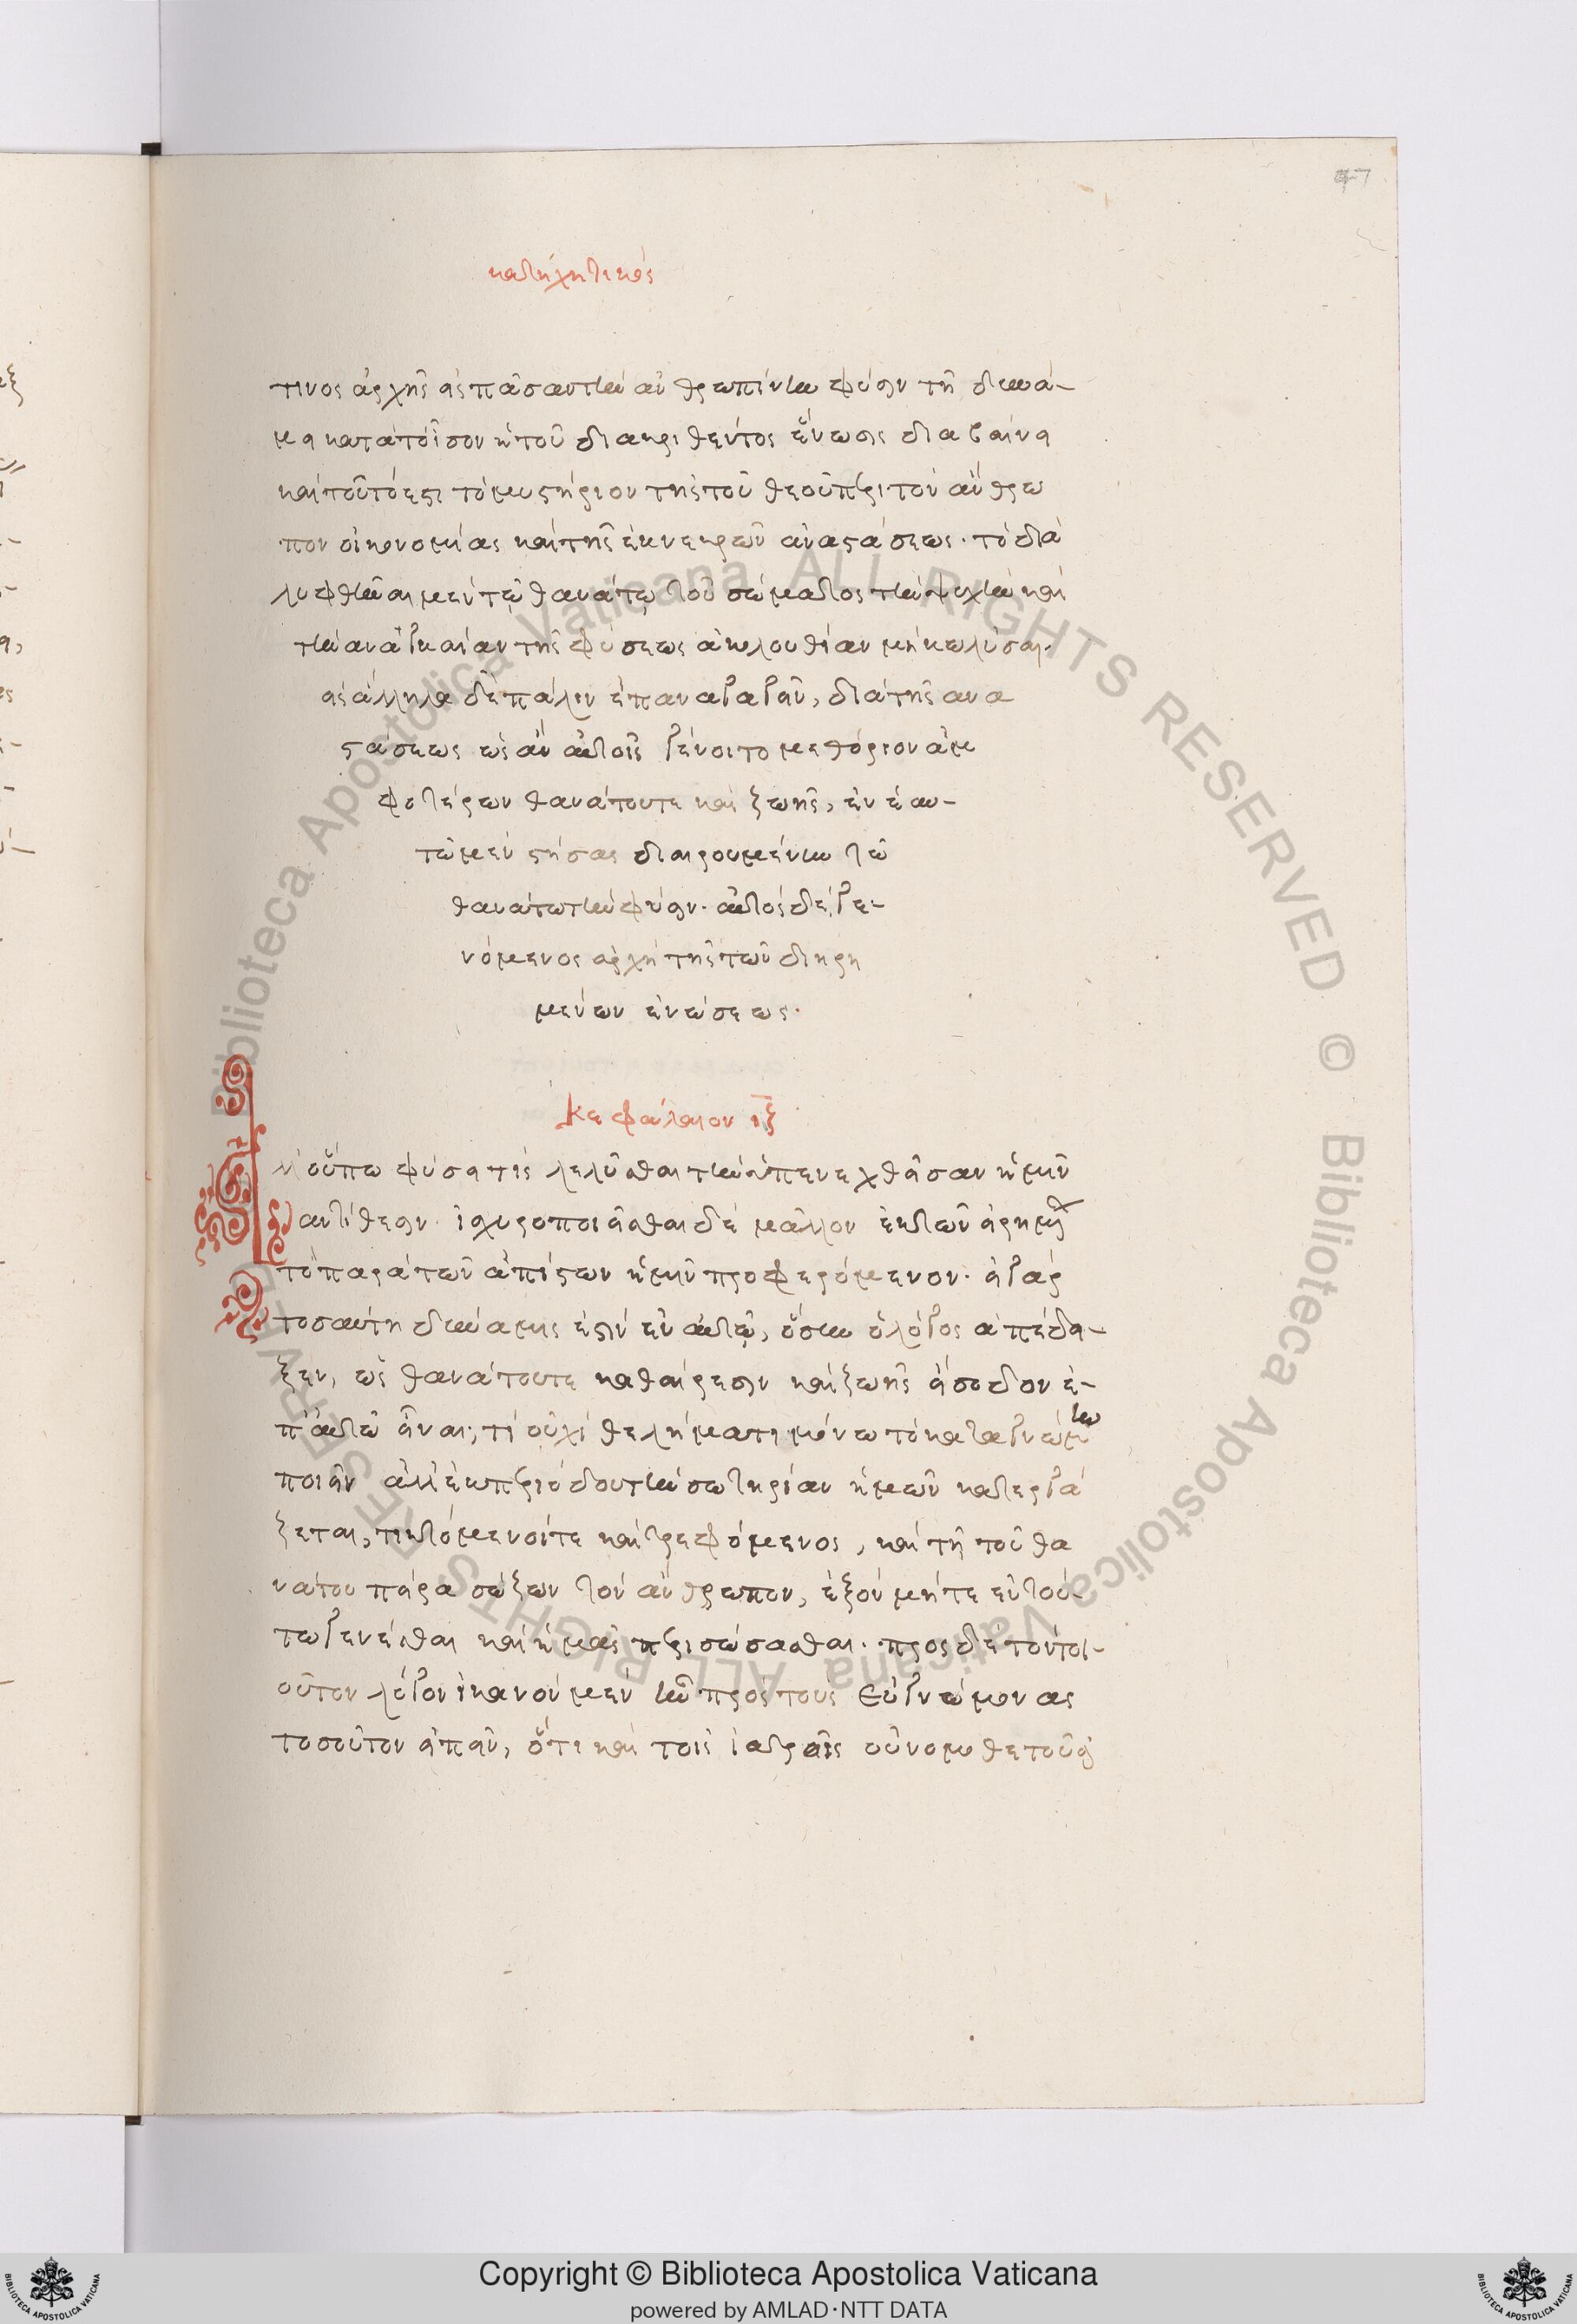 47
κατηχητικός
τινος ἀρχῆς εἰς πᾶσαν τὴν ἀνθρωπίνην φύσιν τῇ δυνά-
μει κατὰ τὸ ἴσον ἡ τοῦ διακριθέντος ἕνωσις διαβαίνει
καὶ τοῦτό ἐστι τὸ μυστήριον τῆς τοῦ θεοῦ περὶ τὸν ἄνθρω
πον οἰκονομίας καὶ τῆς ἐκ νεκρῶν ἀναστάσεως· τὸ δια
λυφθῆναι μὲν τῷ θανάτῳ τοῦ σώματος τὴν ψυχὴν καὶ
τὴν ἀναγκαίαν τῆς φύσεως ἀκολουθίαν μὴ κωλύσαι·
εἰς ἄλληλα δὲ πάλιν ἐπαναγαγεῖν, διὰ τῆς ανα
στάσεως ὡς ἂν αὐτοῖς γένοιτο μεθόριον ἀμ
φοτέρων θανάτου τε καὶ ζωῆς, ἐν ἑαυ-
τῶ μὲν στήσας διαιρουμένην τῶ
θανάτω τὴν φύσιν· αὐτὸς δὲ γε-
νόμενος ἀρχὴ τῆς τῶν διηρη
μένων ἑνώσεως·
Κεφάλαιον ιξ
Ἀλλ' οὔπω φύσει τίς λελύσθαι τὴν ὑπενεχθεῖσαν ἡμῖν
ἀντίθεσιν· ἰσχυροποιεῖσθαι δὲ μᾶλλον ἐκ τῶν εἰρημέ
τὸ παρὰ τῶν ἀπίστων ἡμῖν προφερόμενον· εἰ γὰρ
τοσαύτη δύναμις ἐστὶν ἐν αὐτῷ, ὅσην ὁ λόγος ἀπέδει-
ξεν, ὡς θανάτου τε καθαίρεσιν καὶ ζωῆς εἴσοδον ἐ-
π' αὐτῶ εἶναι, τί οὐχὶ θελήματι μόνω τὸ κατὰ γνώμην
ποιεῖν ἀλλ' ἐκ περιόδου τὴν σωτηρίαν ἡμῶν κατεργά
ζεται, τικτόμενοός τε καὶ τρεφόμενος, καὶ τῇ τοῦ θα
νάτου πείρα σώζων τὸν ἄνθρωπον, ἐξὸν μήτε ἐν τού-
τω γενέσθαι καὶ ἡμᾶς περισώσασθαι· πρὸς δὲ τὸν τοι-
οῦτον λόγον ἱκανὸν μὲν ἦν πρὸς τοὺς εὐγνώμονας
τοσοῦτον εἰπεῖν, ὅτι καὶ τοῖς ἰατροῖς οὐ νομοθετοῦσι
Copyright © Biblioteca Apostolica Vaticana
powered by AMLAD·NTT DATA